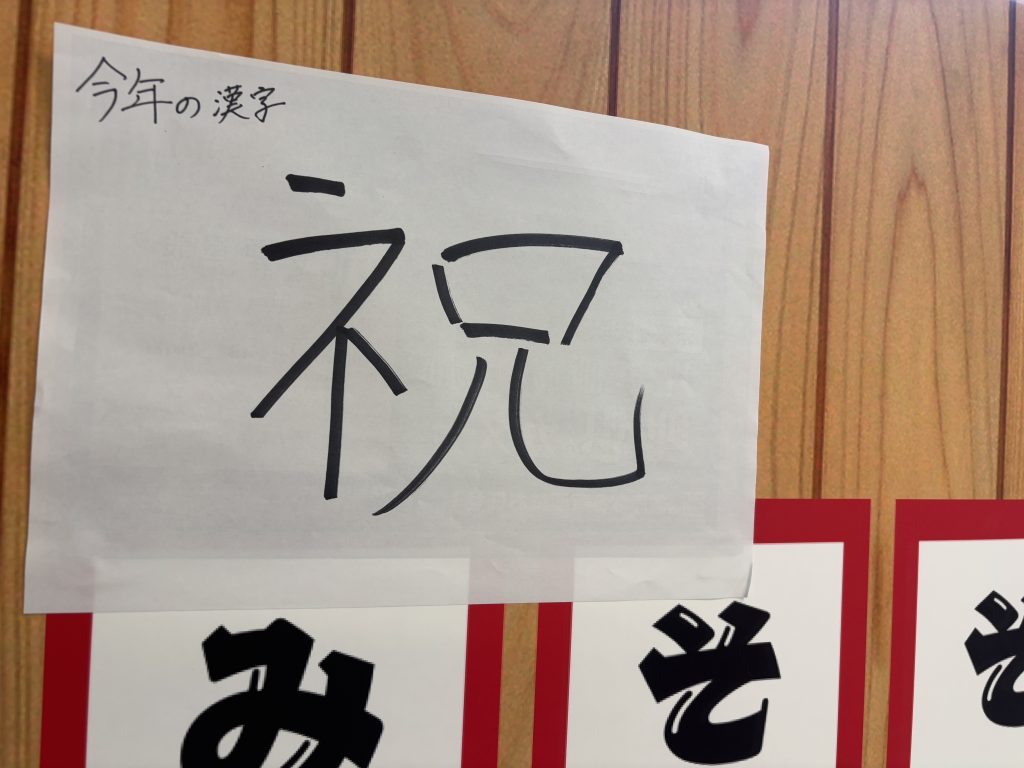 今年の漢字
祝
み
そ
そ